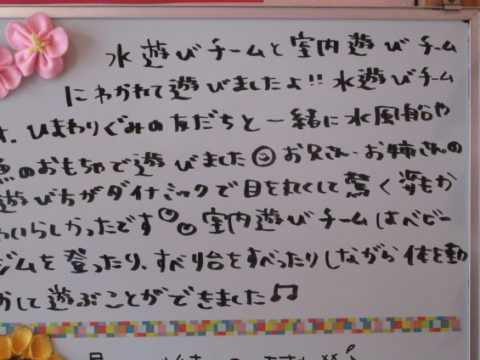 水遊びチームと室内遊びチーム
にわかれて遊びましたよ!! 水遊びチーム
は、ひまわりぐみの友だちと一緒に水風船や
魚のおもちゃで遊びました☺お兄さん、お姉さんの
遊び方がダイナミックで目を丸くして驚く姿もか
わいらしかったです☺。室内遊びチームはベビー
ジムを登ったり、すべり台をすべったりしながら体を動
かして遊ぶことができました♫